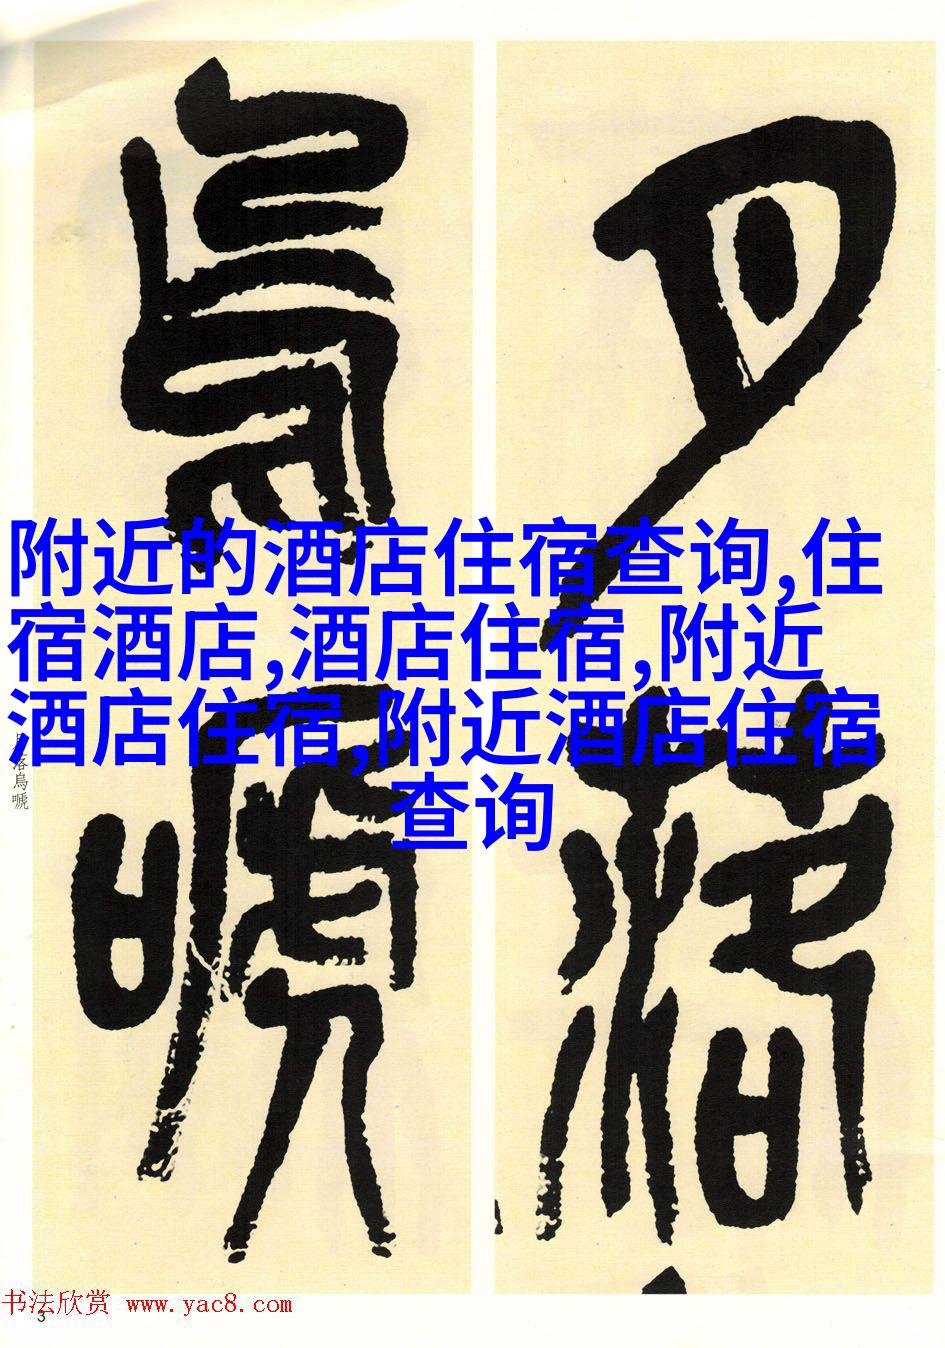 月落
烏嗁
附近的酒店住宿查询,住
宿酒店,酒店住宿,附近
酒店住宿,附近酒店住宿
查询
月落烏嗁
书法欣赏 www.yac8.com
3